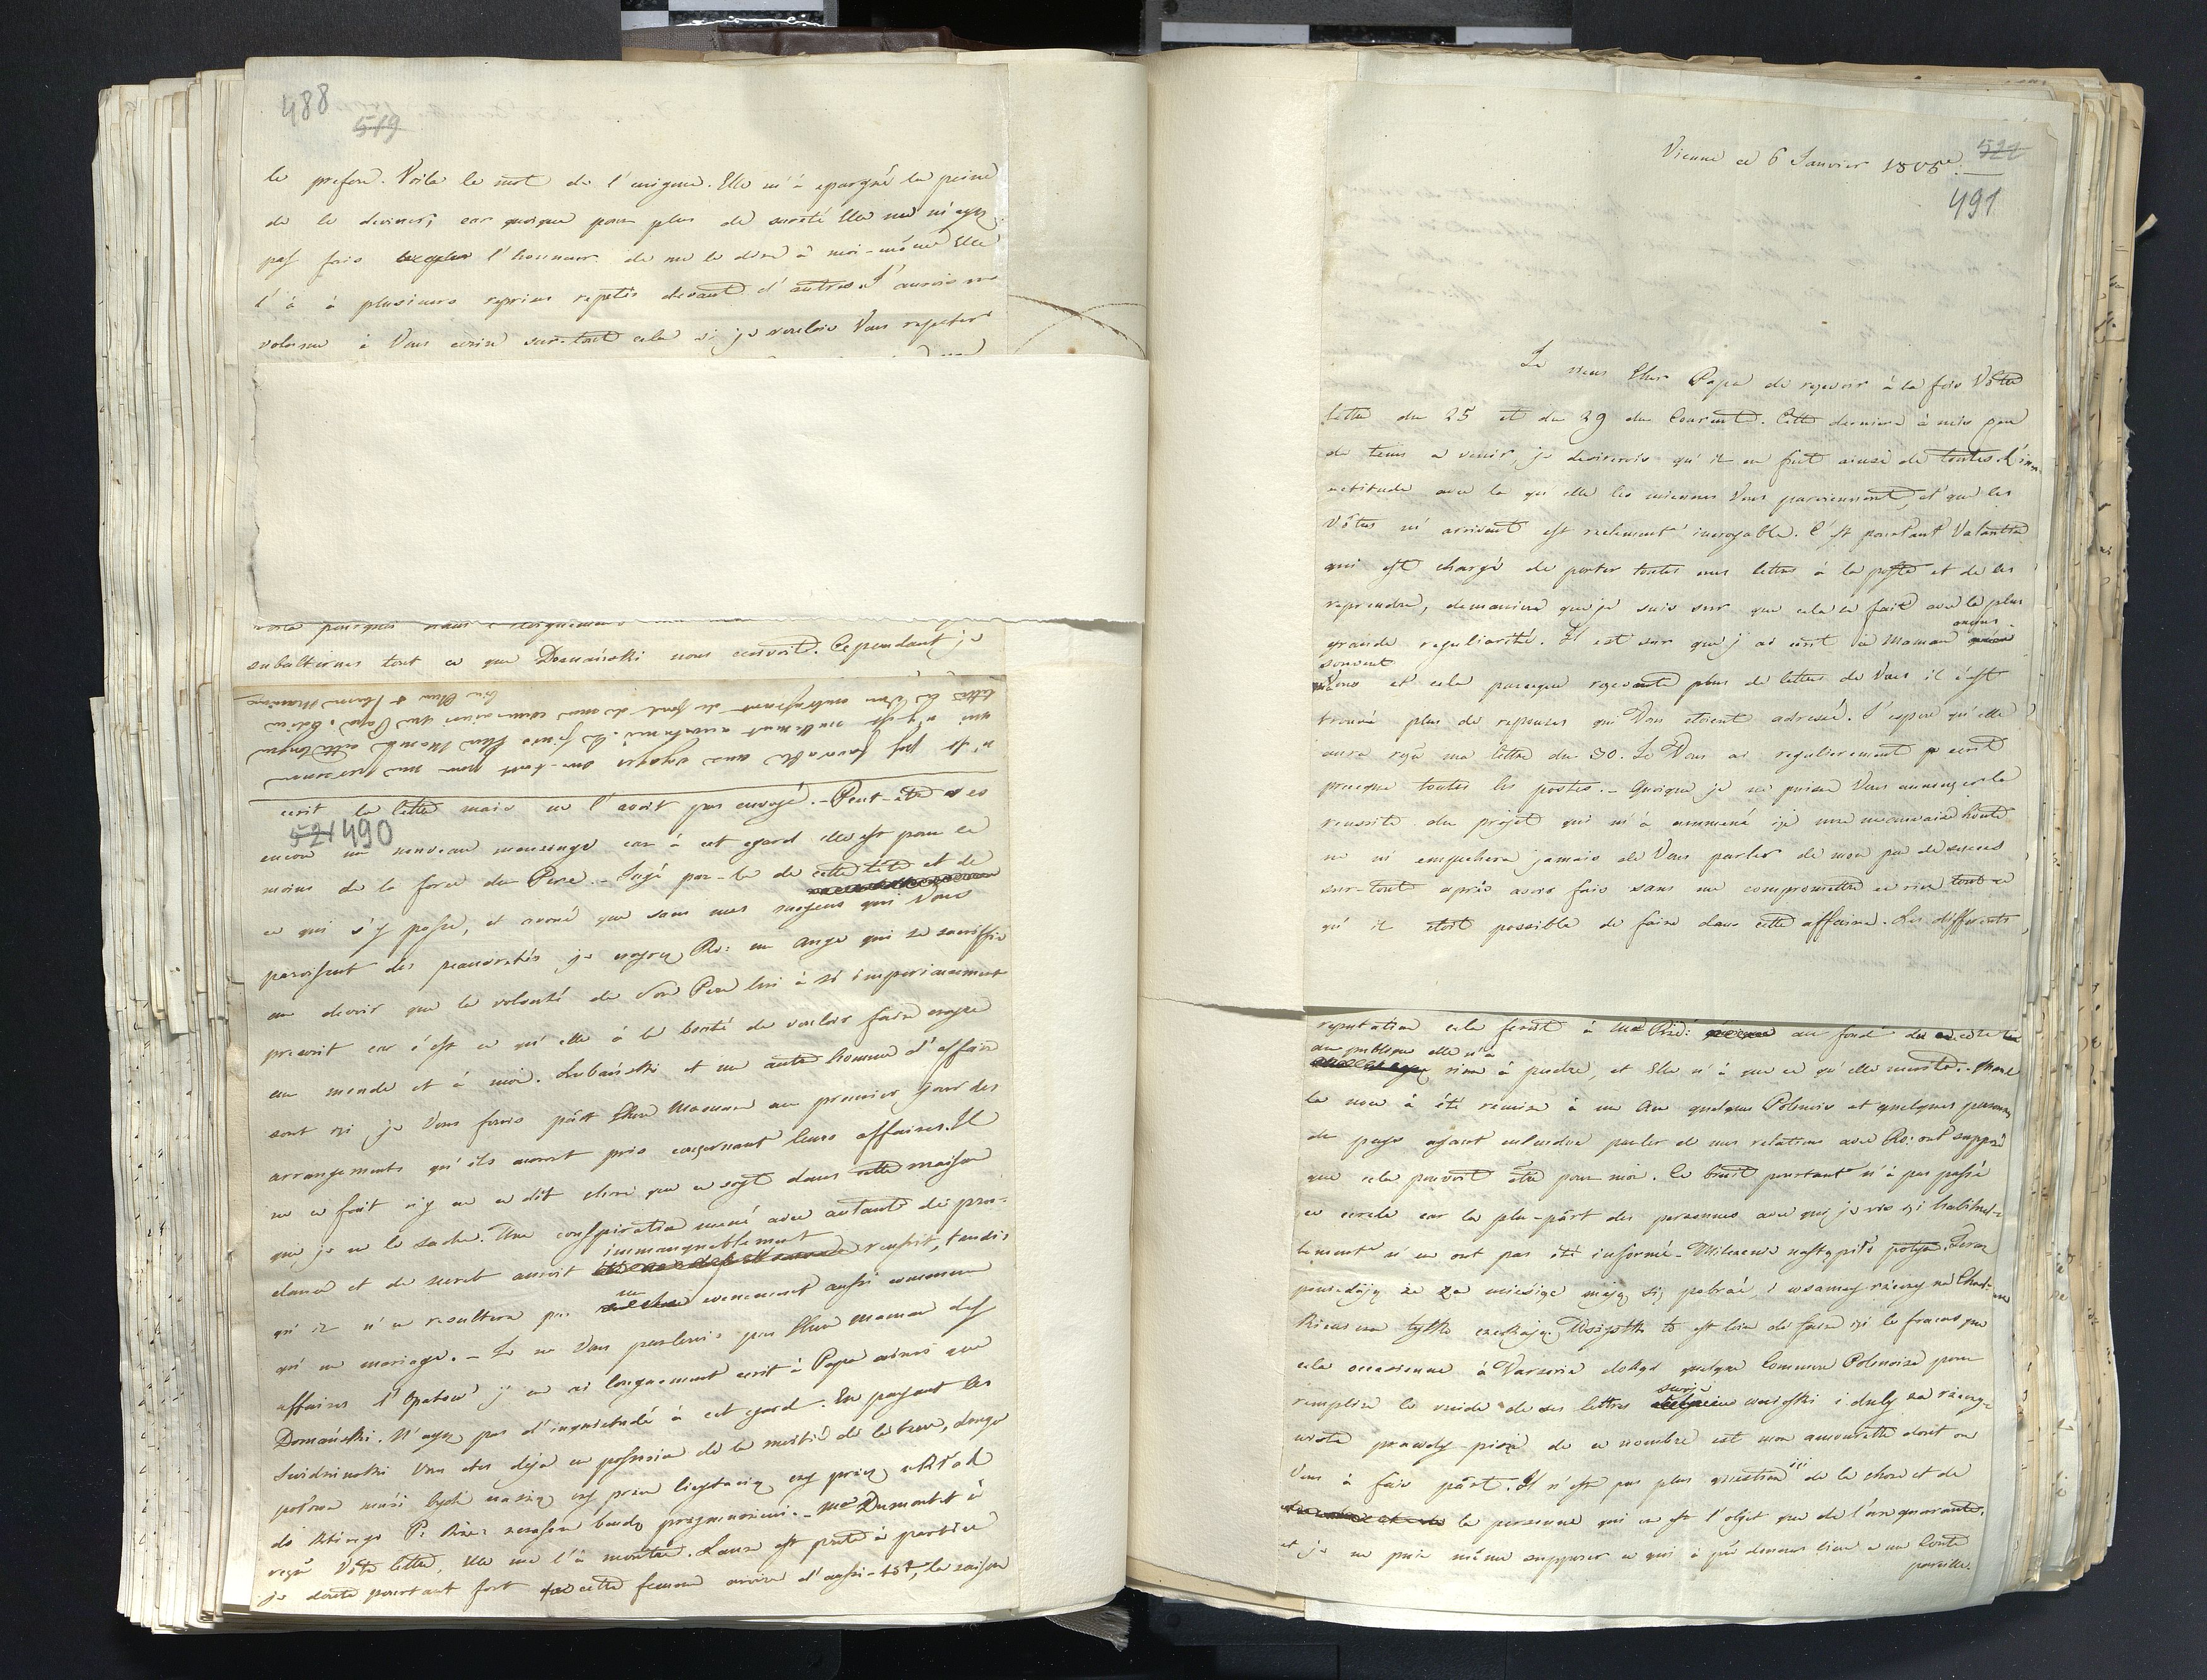 488
519
le prefere. Voila le mot de l'enigme. Elle m'à epargné la peine
de le deviner, car quoique pour plus de sureté Elle ne m'aye
pas fais l'honneur de me le dire à moi-même Elle
l'à à plusieurs reprises repetés devant d'autres. J'aurois un
volume à Vous ecrire sur-tout cela si je voulois Vous repeter
subalternes tout ce que Domański nous ecrivoit. Cependant je
n'est pas favorable aux voyages sur-tout pour une personne
qui n'y est nullement accoutumé. Je finis Chere Maman cette longue
lettre
ecrit la lettre mais ne l'avoit pas envoyé. - Peut-etre est ce
521 490
encore un nouveau mensonge car à cet egard elle est pour le
moins de la force du Pere. - Jugé par-la de cette tête et de
ce qui s'y passe, et avoué que sans mes moyens qui Vous
paroissent des pauvretés je croyez Ro: un Ange qui se sacrifie
au devoir que la volonté de Son Pere lui à si imperieusement
prescrit car c'est ce qu'elle à la bonté de vouloir faire croire
au monde et à moi. Lubański et un autre homme d'affaire
sont ici je Vous ferois pârt Chere Maman au premier jour des
arrangements qu'ils auront pris conçernant leurs affaires. Il
ne ce fait n'y ne ce dit chose que ce soyt dans cette maison
que je ne le sache. Une conspiration mené avec autant de pru-
dence et de secret auroit immanquablement reussit, tandis
qu'il n'en resultera pas un evenement aussi commun
qu'un mariage. - Je ne Vous parlerois pas Chere Maman des
affaires d'Opatow j'en ai longuement ecrit à Papa ainsi que
Domański. N'ayez pas d'inquietude à cet egard. En payant les
Swidzinski Vous etes deja en possession de la moitié de la terre, druga
połowa musi bydź naszą czy przez licytacią czy przez układ
do którego P: Rze: nareszcie będą przymuszeni. - Me Dumontet à
reçu Vôtre lettre, Elle me l'à montré. Laure est prete à partir
je doute pourtant fort que cette femme arrive d'aussi-tôt, la saison
Vienne ce 6 Janvier 1805.
522
491
Je viens Cher Papa de reçevoir à la fois Vôtre
lettre du 25 et du 29 du Courant. Cette derniere à mis peu
de tems a venir, je desirerois qu'il en fut ainsi de toutes. L'inex-
actitude avec la qu'elle les miennes Vous parviennent, et que les
Vôtres m'arrivent est reelement incroyable. C'est pourtant Valentin
qui est chargé de porter toutes mes lettres à la poste et de les
reprendre, demaniere que je suis sur que cela ce fait avec la plus
grande reguliarité. Il est sûr que j'ai ecrit à Maman moins
souvent
et cela parceque reçevant plus de lettres de Vous il c'est
trouvé plus de reponses qui Vous etoient adressé. J'espere qu'elle
aura reçu ma lettre du 30. Je Vous ai regulierement ecrit
presque toutes les postes. - Quoique je ne puisse Vous annonçer la
reussite du projet qui m'à ammené içi une mauvaise honte
ne m'empechera jamais de Vous parler de mon peu de succes
sur-tout après avoir fais sans me compromettre en rien tout ce
qu'il etoit possible de faire dans cette affaire. Les differents
reputation cela feroit à Me Rze: au fond
au publique elle n'a
rien à perdre, et Elle n'à que ce qu'elle merite. -
la noce à été remise à un An quelques Polonois et quelques personnes
du pays ayant entendue parler de mes relations avec Ro: ont supposé
que cela pouvoit être pour moi. Ce bruit pourtant n'à pas passé
ce cercle car la plu-pârt des personnes avec qui je vis içi habituel-
lement n'en ont pas été informé. - Milczenie nastąpiło potym. Teraz
powiadają że za miesiąc mają się pobrać, i w samey rzeczy na Chod-
kiewicza tylko czekają. Wszystko to est loin de faire içi le fracas que
cela occasionne à Varsovie dokąd quelque Commere Polonoise pour
remplire le vuide de ses lettres swoje wnioski i duby za rzeczy-
wistą prawdę pisze de ce nombre est mon amourette dont on
Vous à fais pârt. Il n'est pas plus question ici de la chose et de
la personne qui en est l'objet que de l'an quarante,
et je ne puis même supposer ce qui à pû donner lieu à un Conte
pareille.